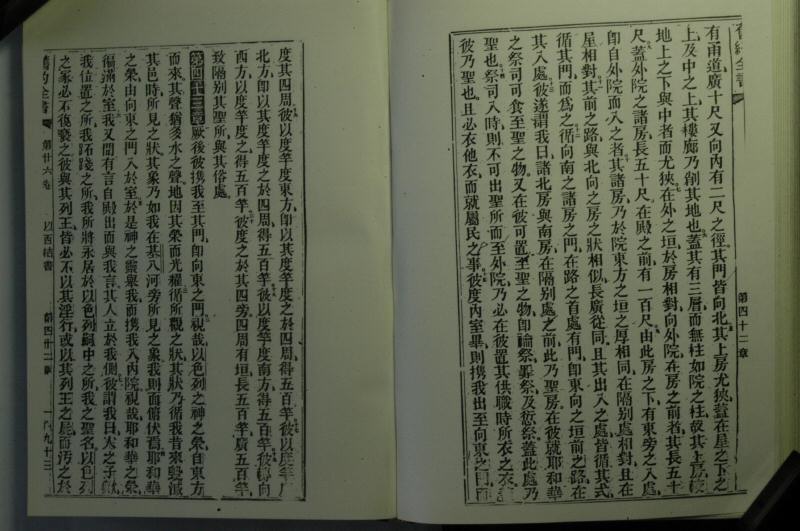 舊約全書
第四十二章
有甬道廣十尺又向內有二尺之徑其門皆向北其上房尤狹蓋在屋之下之
上及中之上其樓廊乃削其地也蓋其有三層而無柱如院之柱故其上房較
地上之下與中者而尤狹在外之垣於房相對向外院在房之前者其長五十
尺蓋外院之諸房長五十尺在殿之前有一百尺由此房之下有東旁之入處
即自外院而入之者其諸房乃於院東方之垣之厚相同在隔別處相對且在
星相對其前之路與北向之房之狀相似長廣從同且其出入之處皆循其式
循其門而為之循向南之諸房之門在路之首處有門即東向之垣前之路在
其入處彼遂謂我曰諸北房與南房在隔別處之前此乃聖房在彼就耶和華
之祭司可食至聖之物又在彼可置至聖之物即論祭罪祭及愆祭蓋此處乃
聖也祭司入時則不可出聖所而至外院乃必在彼置其供職時所衣之衣
彼乃聖也且必衣他衣而就屬民之事彼度內室畢則携我出至向東之門而
度其四周彼以度竿度東方即以其度竿度之於四周得五百竿彼以度竿度
北方即以其度竿度之於四周得五百竿彼以度竿度南方得五百竿彼轉向
西方以度竿度之得五百竿彼度之於其四旁四周有垣長五百竿廣五百竿
致隔別其聖所與其俗處
第四十三章厥後彼携我至其門即向東之門視哉以色列之神之榮自東方
而來其聲猶多水之聲地因其榮而光耀循所觀之狀其狀乃循我昔來毀滅
其邑時所見之狀其象乃如我在基八河旁所見之象我則面俯伏焉耶和華
之榮由向東之門入於室於是神之靈舉我而携我入內院視哉耶和華之榮
徧滿於室我又聞有言自殿出而與我言其人立於我側彼謂我曰人之子歟
我位置之所我跴踐之所我所將永居於以色列嗣中之所我之聖名以色列
之家必不復褻之彼與其列王皆必不以其淫行或以其列王之屍而污之於
舊約全書
第廿六卷
以西結書
第四十二章
一千九十三